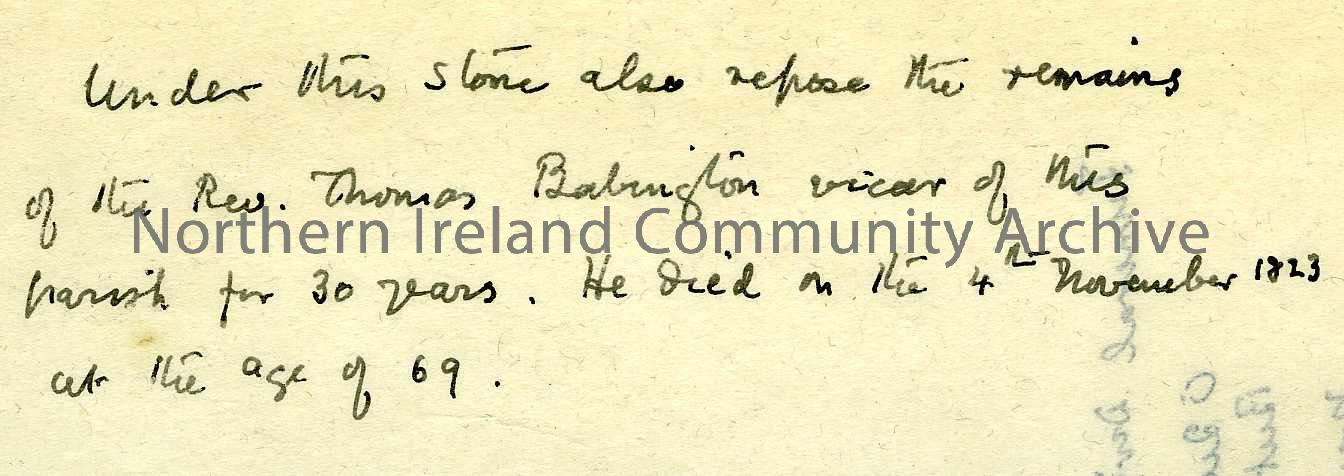 Under this stone also repose the remains
of the Rev. Thomas Babington vicar of this
Northern Ireland Community Archive
parish for 30 years. He died on the 4th November 1823
at the age of 69.